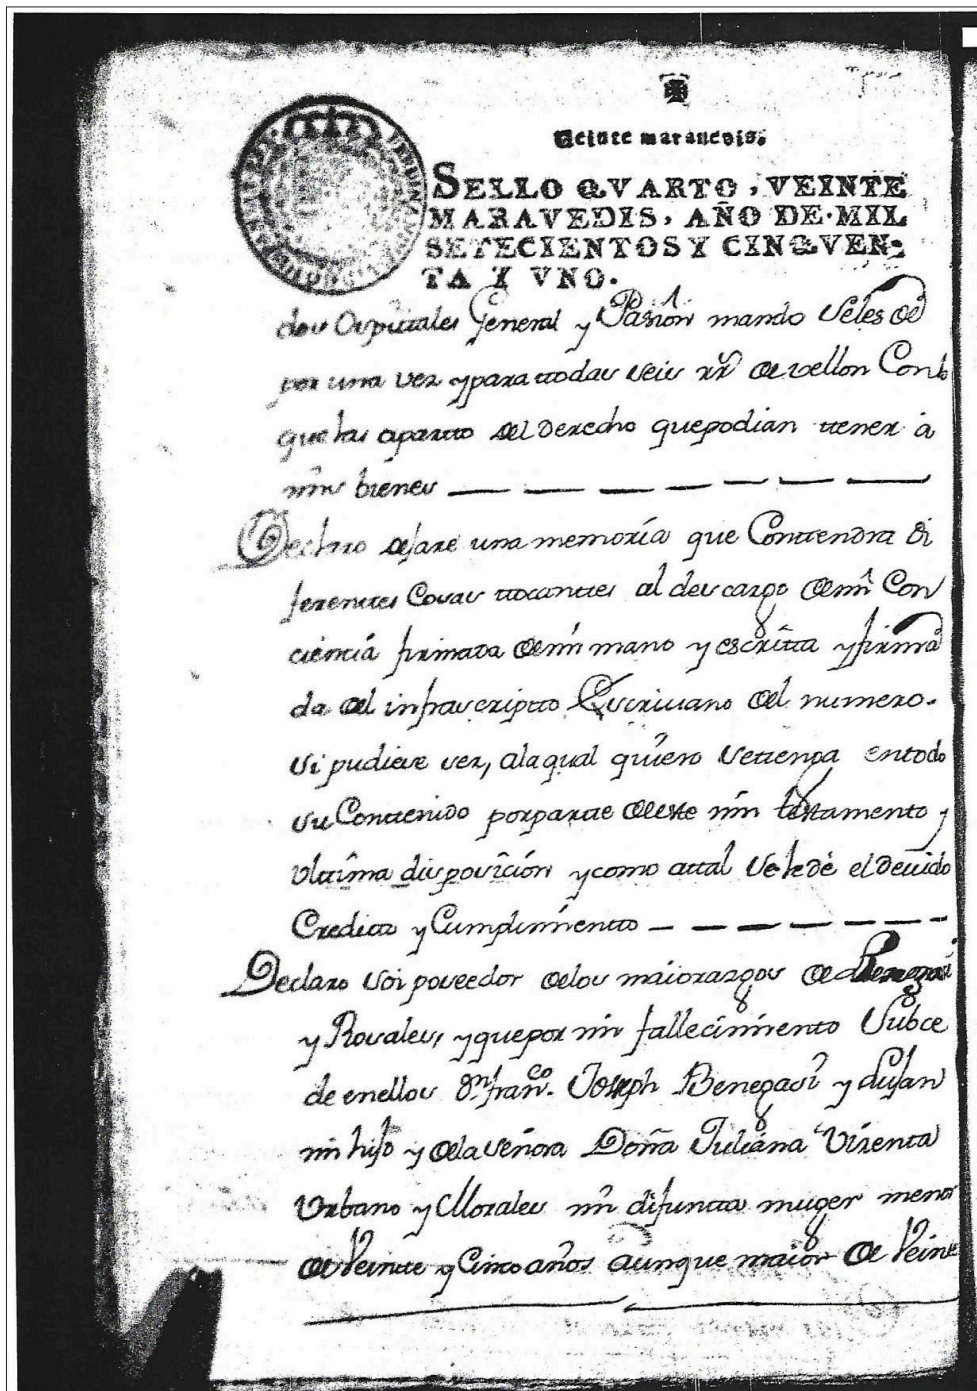 Veinte maravedis.
SELLO QVARTO, VEINTE
MARAVEDIS, AÑO DE MIL
SETECIENTOS Y CINQVEN-
TA Y VNO.
dos Ospitales General y Pasion mando seles dé
por una vez y para ttodas seis rrs. de vellon Con lo
que los apartto del derecho que podian ttener â
mis bienes
Declaro dejare una memoria que Conttendra di
ferenttes Cosas ttocanttes al descargo de mi Con
ciencia firmada de mi mano y escritta y firma
da del infrascriptto Escriuano del numero.
si pudiese ser, ala qual quiero settenga en todo
su Conttenido por partte de este mi testamento y
vlttima disposicion y como attal se le dè el deuido
Creditto y Cumplimientto
Declaro soi poseedor delos maiorazgos de Benegasi
y Rosales, y que por mi fallecimiento Subce
de en ellos Dn. Franco. Joseph Benegasi y Lujan
mi hijo y dela señora Doña Juliana Vizenta
Urbano y Morales mi difuntta muger menor
de Veintte y Cinco años aunque maior de Veinte